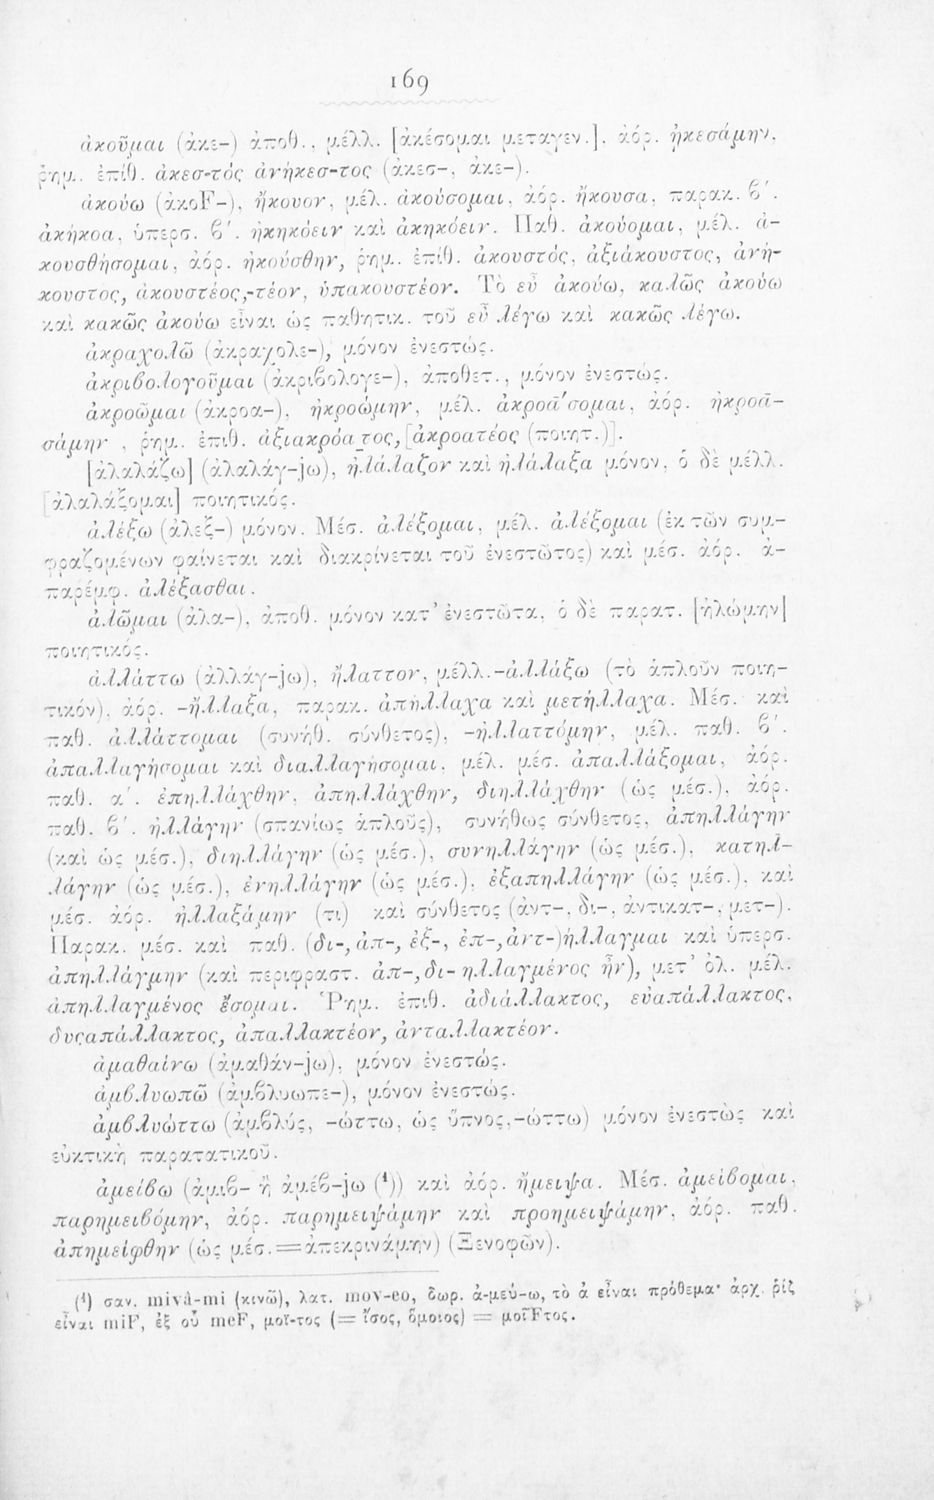 169
ἀκοῦμαι (ἀκε-) ἀποθ., μέλλ. [ἀκέσομαι μεταγεν.], ἀόρ. ἠκεσάμην,
ῥημ. ἐπίθ. ἀκεσ-τὸς ἀνήκεσ-τος (ἀκεσ-, ἀκε-).
ἀκούω (ἀκοF-), ἤκουον, μέλ. ἀκούσομαι, ἀόρ. ἤκουσα, παρακ. ϐ΄.
ἀκήκοα, ὑπερσ. ϐ΄. ἠκηκόειν καὶ ἀκηκόειν. Παθ. ἀκούομαι, μέλ. ἀ-
κουσθήσομαι, ἀόρ. ἠκούσθην, ῥημ. ἐπίθ. ἀκουστός, ἀξιάκουστος, ἀνή-
κουστος, ἀκουστέος,-τέον, ὑπακουστέον. Τὸ εὖ ἀκούω, καλῶς ἀκούω
καὶ κακῶς ἀκούω εἶναι ὡς παθητικ. τοῦ εὖ λέγω καὶ κακῶς λέγω.
ἀκραχολῶ (ἀκραχολε-), μόνον ἐνεστώς.
ἀκριϐολογοῦμαι (ἀκριϐολογε-), ἀποθετ., μόνον ἐνεστώς.
ἀκροῶμαι (ἀκροα-), ἠκροώμην, μέλ. ἀκροᾱ́σομαι, ἀόρ. ἠκροᾱ-
σάμην, ῥημ. ἐπιθ. ἀξιακρόατος, [ἀκροατέος (ποιητ.)].
[ἀλαλάζω] (ἀλαλάγ-jω), ἠλάλαζον καὶ ἠλάλαξα μόνον, ὁ δὲ μέλλ.
[ἀλαλάξομαι] ποιητικός.
ἀλέξω (ἀλεξ-) μόνον. Μέσ. ἀλέξομαι, μέλ. ἀλέξομαι (ἐκ τῶν συμ-
φραζομένων φαίνεται καὶ διακρίνεται τοῦ ἐνεστῶτος) καὶ μέσ. ἀόρ. ἀ-
παρέμφ. ἀλέξασθαι.
ἀλῶμαι (ἀλα-), ἀποθ. μόνον κατ' ἐνεστῶτα, ὁ δὲ παρατ. [ἠλώμην]
ποιητικός.
ἀλλάττω (ἀλλάγ-jω), ἤλαττον, μέλλ.-ἀλλάξω (τὸ ἁπλοῦν ποιη-
τικόν), ἀόρ. -ἤλλαξα, παρακ. ἀπήλλαχα καὶ μετήλλαχα. Μέσ. καὶ
παθ. ἀλλάττομαι (συνήθ. σύνθετος), -ἠλλαττόμην, μέλ. παθ. ϐ΄.
ἀπαλλαγήσομαι καὶ διαλλαγήσομαι, μέλ. μέσ. ἀπαλλάξομαι, ἀόρ.
παθ. α΄. ἐπηλλάχθην, ἀπηλλάχθην, διηλλάχθην (ὡς μέσ.), ἀόρ.
παθ. ϐ΄. ἠλλάγην (σπανίως ἁπλοῦς), συνήθως σύνθετος, ἀπηλλάγην
(καὶ ὡς μέσ.), διηλλάγην (ὡς μέσ.), συνηλλάγην (ὡς μέσ.), κατηλ-
λάγην (ὡς μέσ.), ἐνηλλάγην (ὡς μέσ.), ἐξαπηλλάγην (ὡς μέσ.), καὶ
μέσ. ἀόρ. ἠλλαξάμην (τι) καὶ σύνθετος (ἀντ-, δι-, ἀντικατ-, μετ-).
Παρακ. μέσ. καὶ παθ. (δι-, ἀπ-, ἐξ-, ἐπ-, ἀντ-)ήλλαγμαι καὶ ὑπερσ.
ἀπηλλάγμην (καὶ περιφραστ. ἀπ-, δι- ηλλαγμένος ἦν), μετ' ὀλ. μέλ.
ἀπηλλαγμένος ἔσομαι. Ῥημ. ἐπιθ. ἀδιάλλακτος, εὐαπάλλακτος,
δυςαπάλλακτος, ἀπαλλακτέον, ἀνταλλακτέον.
ἀμαθαίνω (ἀμαθάν-jω), μόνον ἐνεστώς.
ἀμϐλυωπῶ (ἀμϐλυωπε-), μόνον ἐνεστώς.
ἀμϐλυώττω (ἀμϐλύς, -ώττω, ὡς ὕπνος,-ώττω) μόνον ἐνεστὼς καὶ
εὐκτικὴ παρατατικοῦ.
ἀμείϐω (ἀμιϐ- ἢ ἀμέϐ-jω (¹)) καὶ ἀόρ. ἤμειψα. Μέσ. ἀμείϐομαι,
παρημειϐόμην, ἀόρ. παρημειψάμην καὶ προημειψάμην, ἀόρ. παθ.
ἀπημείφθην (ὡς μέσ.=ἀπεκρινάμην) (Ξενοφῶν).
(¹) σαν. mivâ-mi (κινῶ), λατ. mov-eo, δωρ. ἀ-μεύ-ω, τὸ ἀ εἶναι πρόθεμα· ἀρχ. ῥίζ
εἶναι miF, ἐξ οὗ meF, μοῖ-τος (= ἴσος, ὅμοιος) = μοῖFτος.